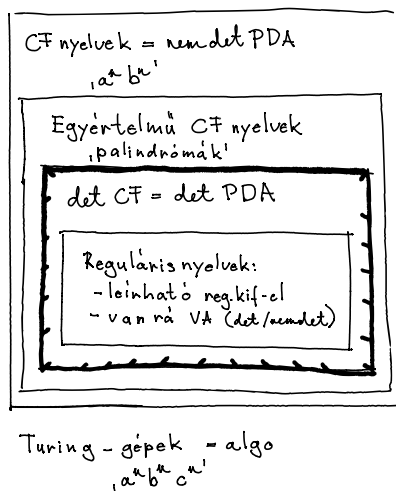 CF nyelvek = nemdet PDA
'aⁿbⁿ'
Egyértelmű CF nyelvek
'palindrómák'
det CF = det PDA
Reguláris nyelvek:
- leírható reg.kif-el
- van rá VA (det/nemdet)
Turing-gépek = algo
'aⁿbⁿcⁿ'